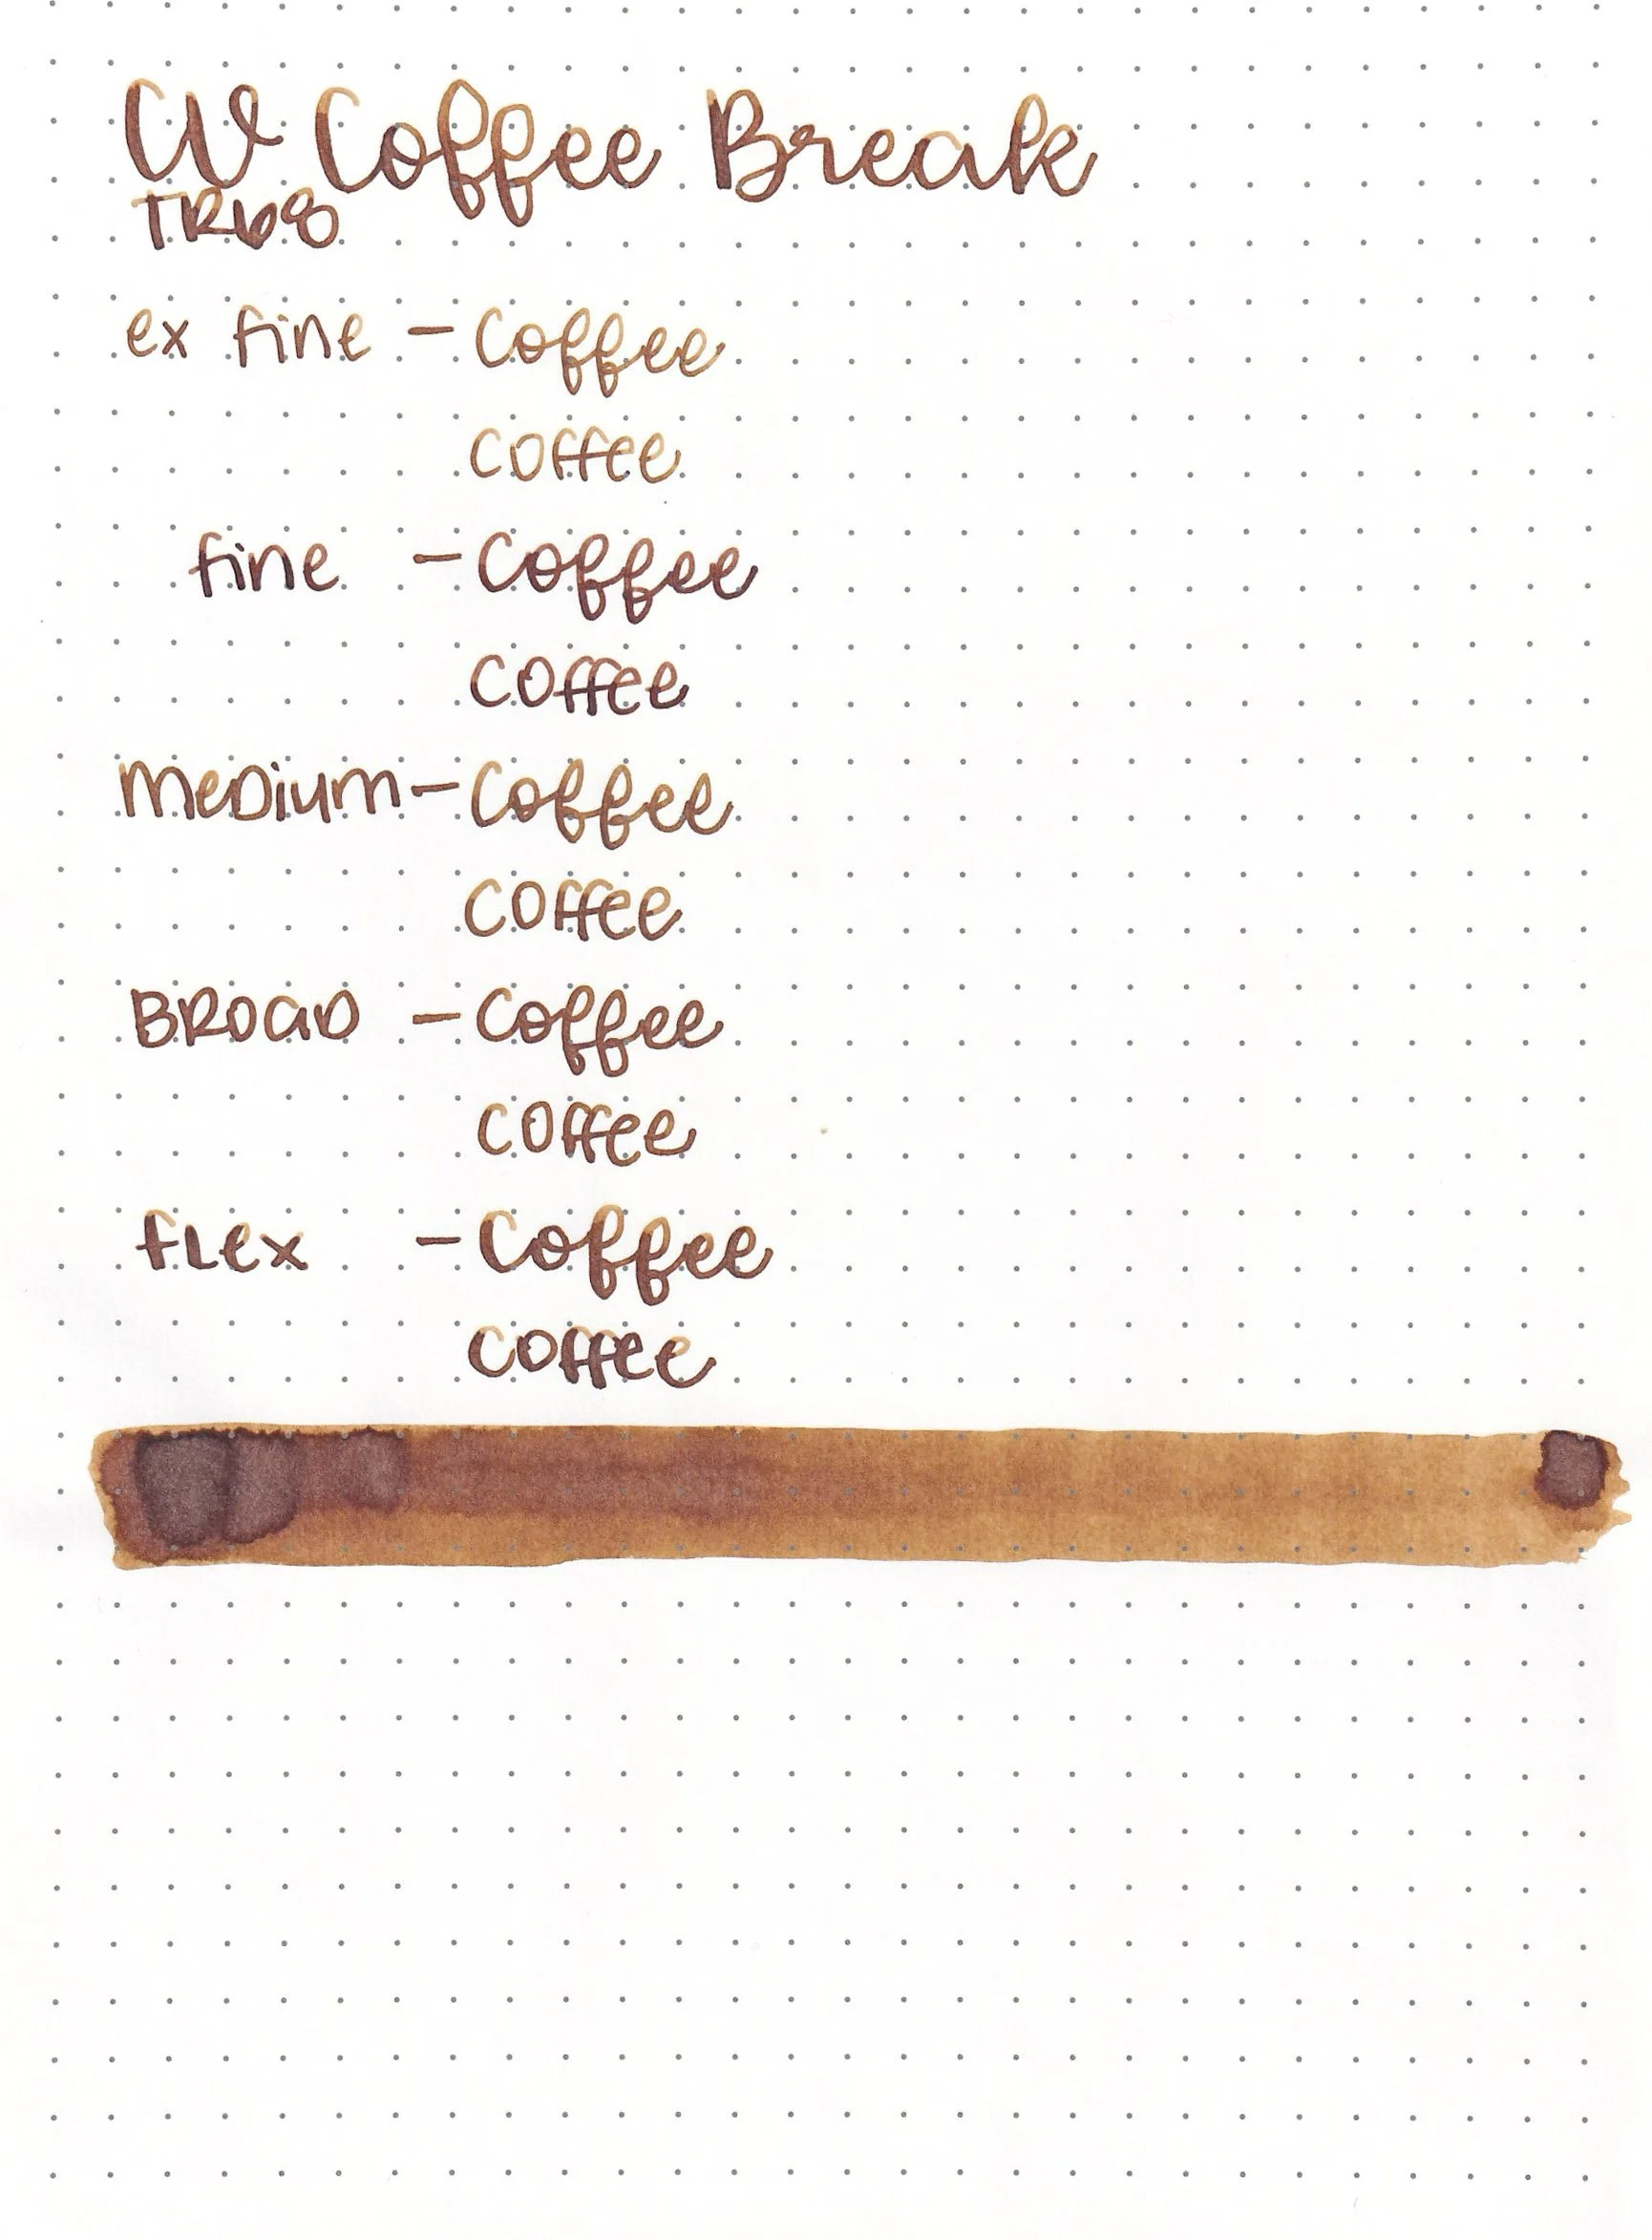 CV Coffee Break
TR68
ex fine - Coffee
coffee
fine - Coffee
coffee
medium - Coffee
coffee
BROAD - Coffee
coffee
flex - Coffee
coffee